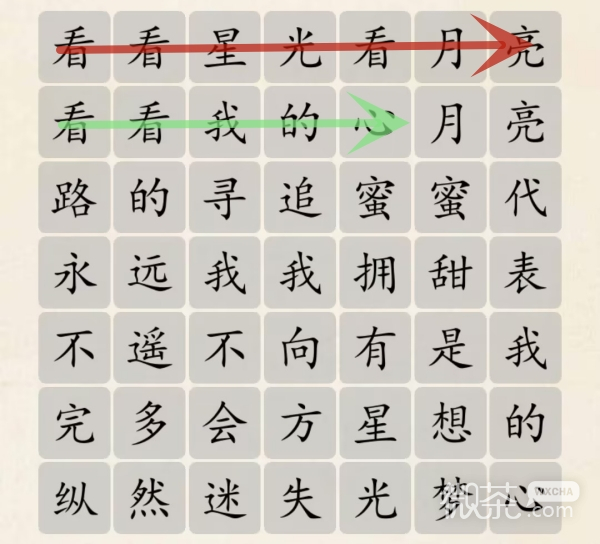 看看星光看月亮
看看我的心月亮
路的寻追蜜蜜代
永远我我拥甜表
不遥不向有是我
完多会方星想的
纵然迷失光梦心
微茶
WXCHA
.com